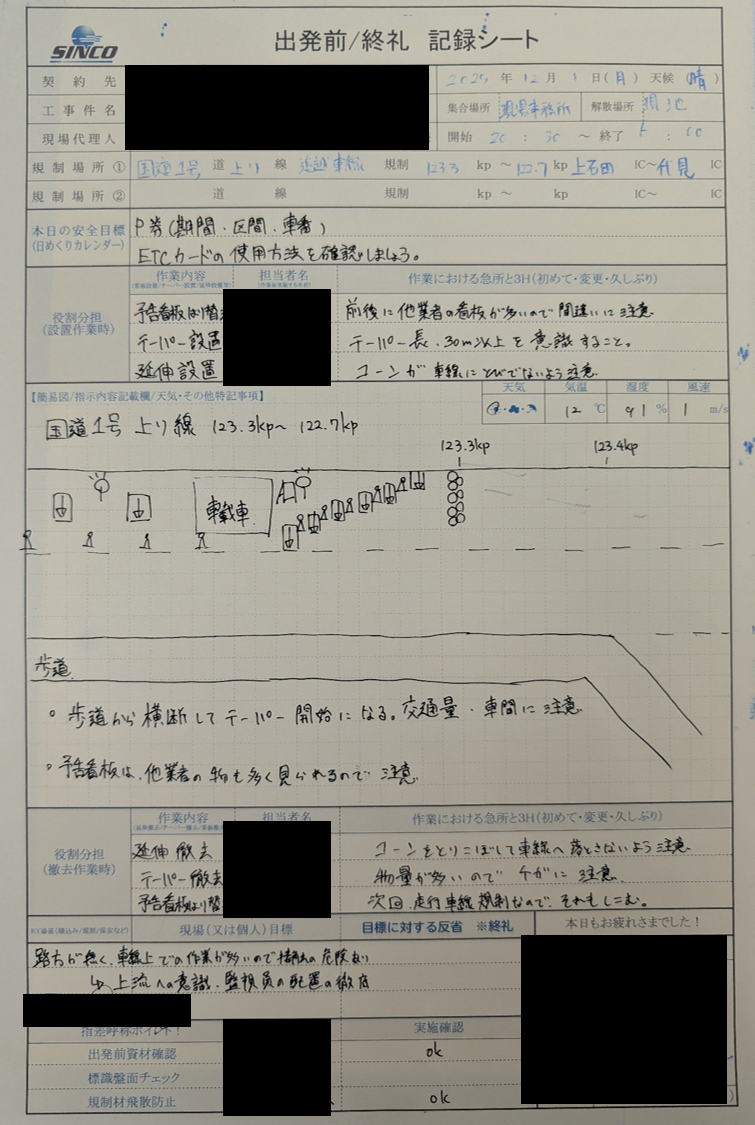 SINCO
出発前/終礼 記録シート
契約先
2025年12月1日(月) 天候(晴)
工事件名
集合場所 現場事務所 解散場所 現地
現場代理人
開始 20:30 ～ 終了 :00
規制場所① 国道1号 道 上り 線 追越車線 規制 123.3 kp ～ 122.7 kp 上石田 IC～ IC
規制場所② 道 線 規制 kp ～ kp IC～ IC
本日の安全目標
(日めくりカレンダー)
P券(期間、区間、車番)
ETCカードの使用方法を確認しましょう。
役割分担
(設置作業時)
作業内容 担当者名 作業における急所と3H(初めて・変更・久しぶり)
予告看板はり替え 前後に他業者の看板が多いので間違いに注意
テーパー設置 テーパー長、30m以上を意識すること。
延伸設置 コーンが車線にとびでないよう注意
【簡易図/指示内容記載欄/天気・その他特記事項】
天気 気温 湿度 風速
12℃ 91% 1 m/s
国道1号 上り線 123.3kp～122.7kp
123.3kp 123.4kp
車載車
歩道
。歩道から横断してテーパー開始になる。交通量・車間に注意
。予告看板は、他業者の物も多く見られるので注意
役割分担
(撤去作業時)
作業内容 担当者名 作業における急所と3H(初めて・変更・久しぶり)
延伸撤去 コーンをとりこぼして車線へ落とさないよう注意
テーパー撤去 物量が多いのでケガに注意
予告看板はり替 次回、走行車線規制なので、それもしこむ。
現場(又は個人)目標 目標に対する反省 ※終礼 本日もお疲れさまでした!
路方が狭く、車線上での作業が多いので接触の危険あり
↳上流への意識、監視員の配置の徹底
指差呼称ポイント! 実施確認
出発前資材確認 ok
標識盤面チェック
規制材飛散防止 ok